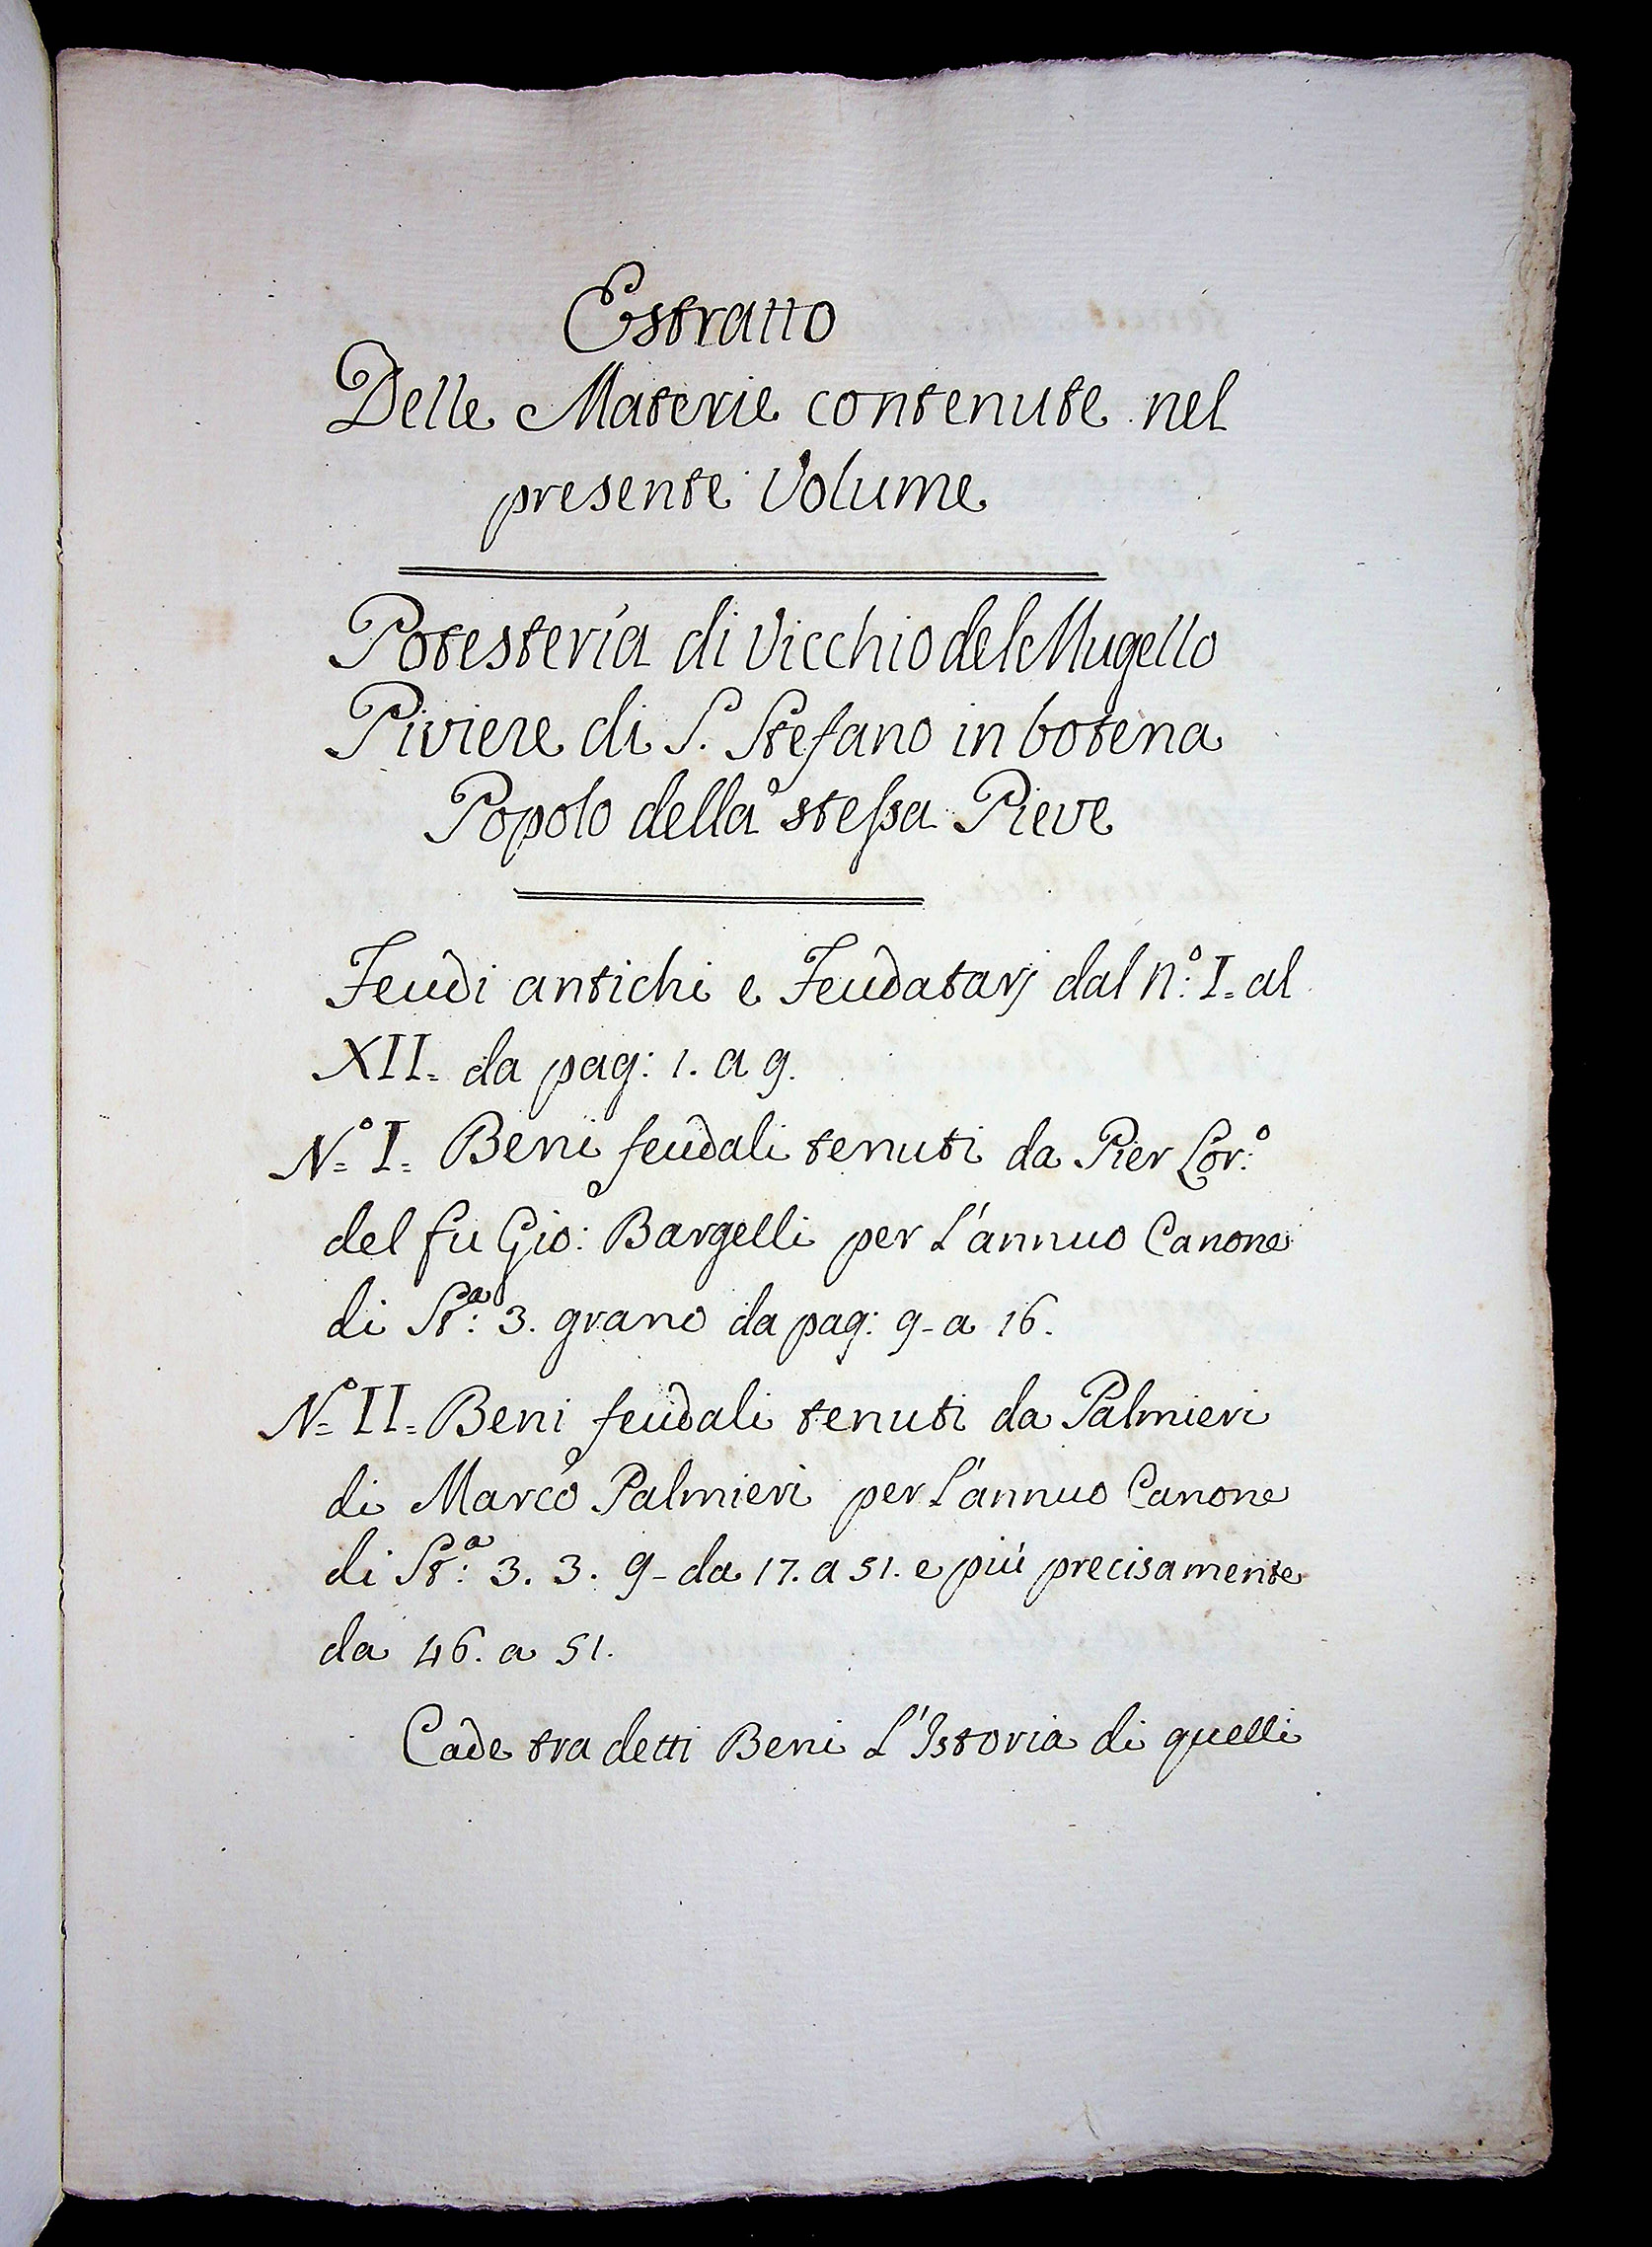 Estratto
Delle Materie contenute nel
presente Volume
Potesteria di Vicchio del Mugello
Piviere di S. Stefano in botena
Popolo della stessa Pieve
Feudi antichi e Feudatarj dal N.º I. al
XII. da pag: 1. a 9.
N.º I. Beni feudali tenuti da Pier Lor:º
del fu Gio: Bargelli per l'annuo Canone
di St:ª 3. grano da pag: 9. a 16.
N.º II. Beni feudali tenuti da Palmieri
di Marco Palmieri per l'annuo Canone
di St:ª 3. 3. 9. da 17. a 51. e più precisamente
da 46. a 51.
Cade tra detti Beni l'Istoria di quelli